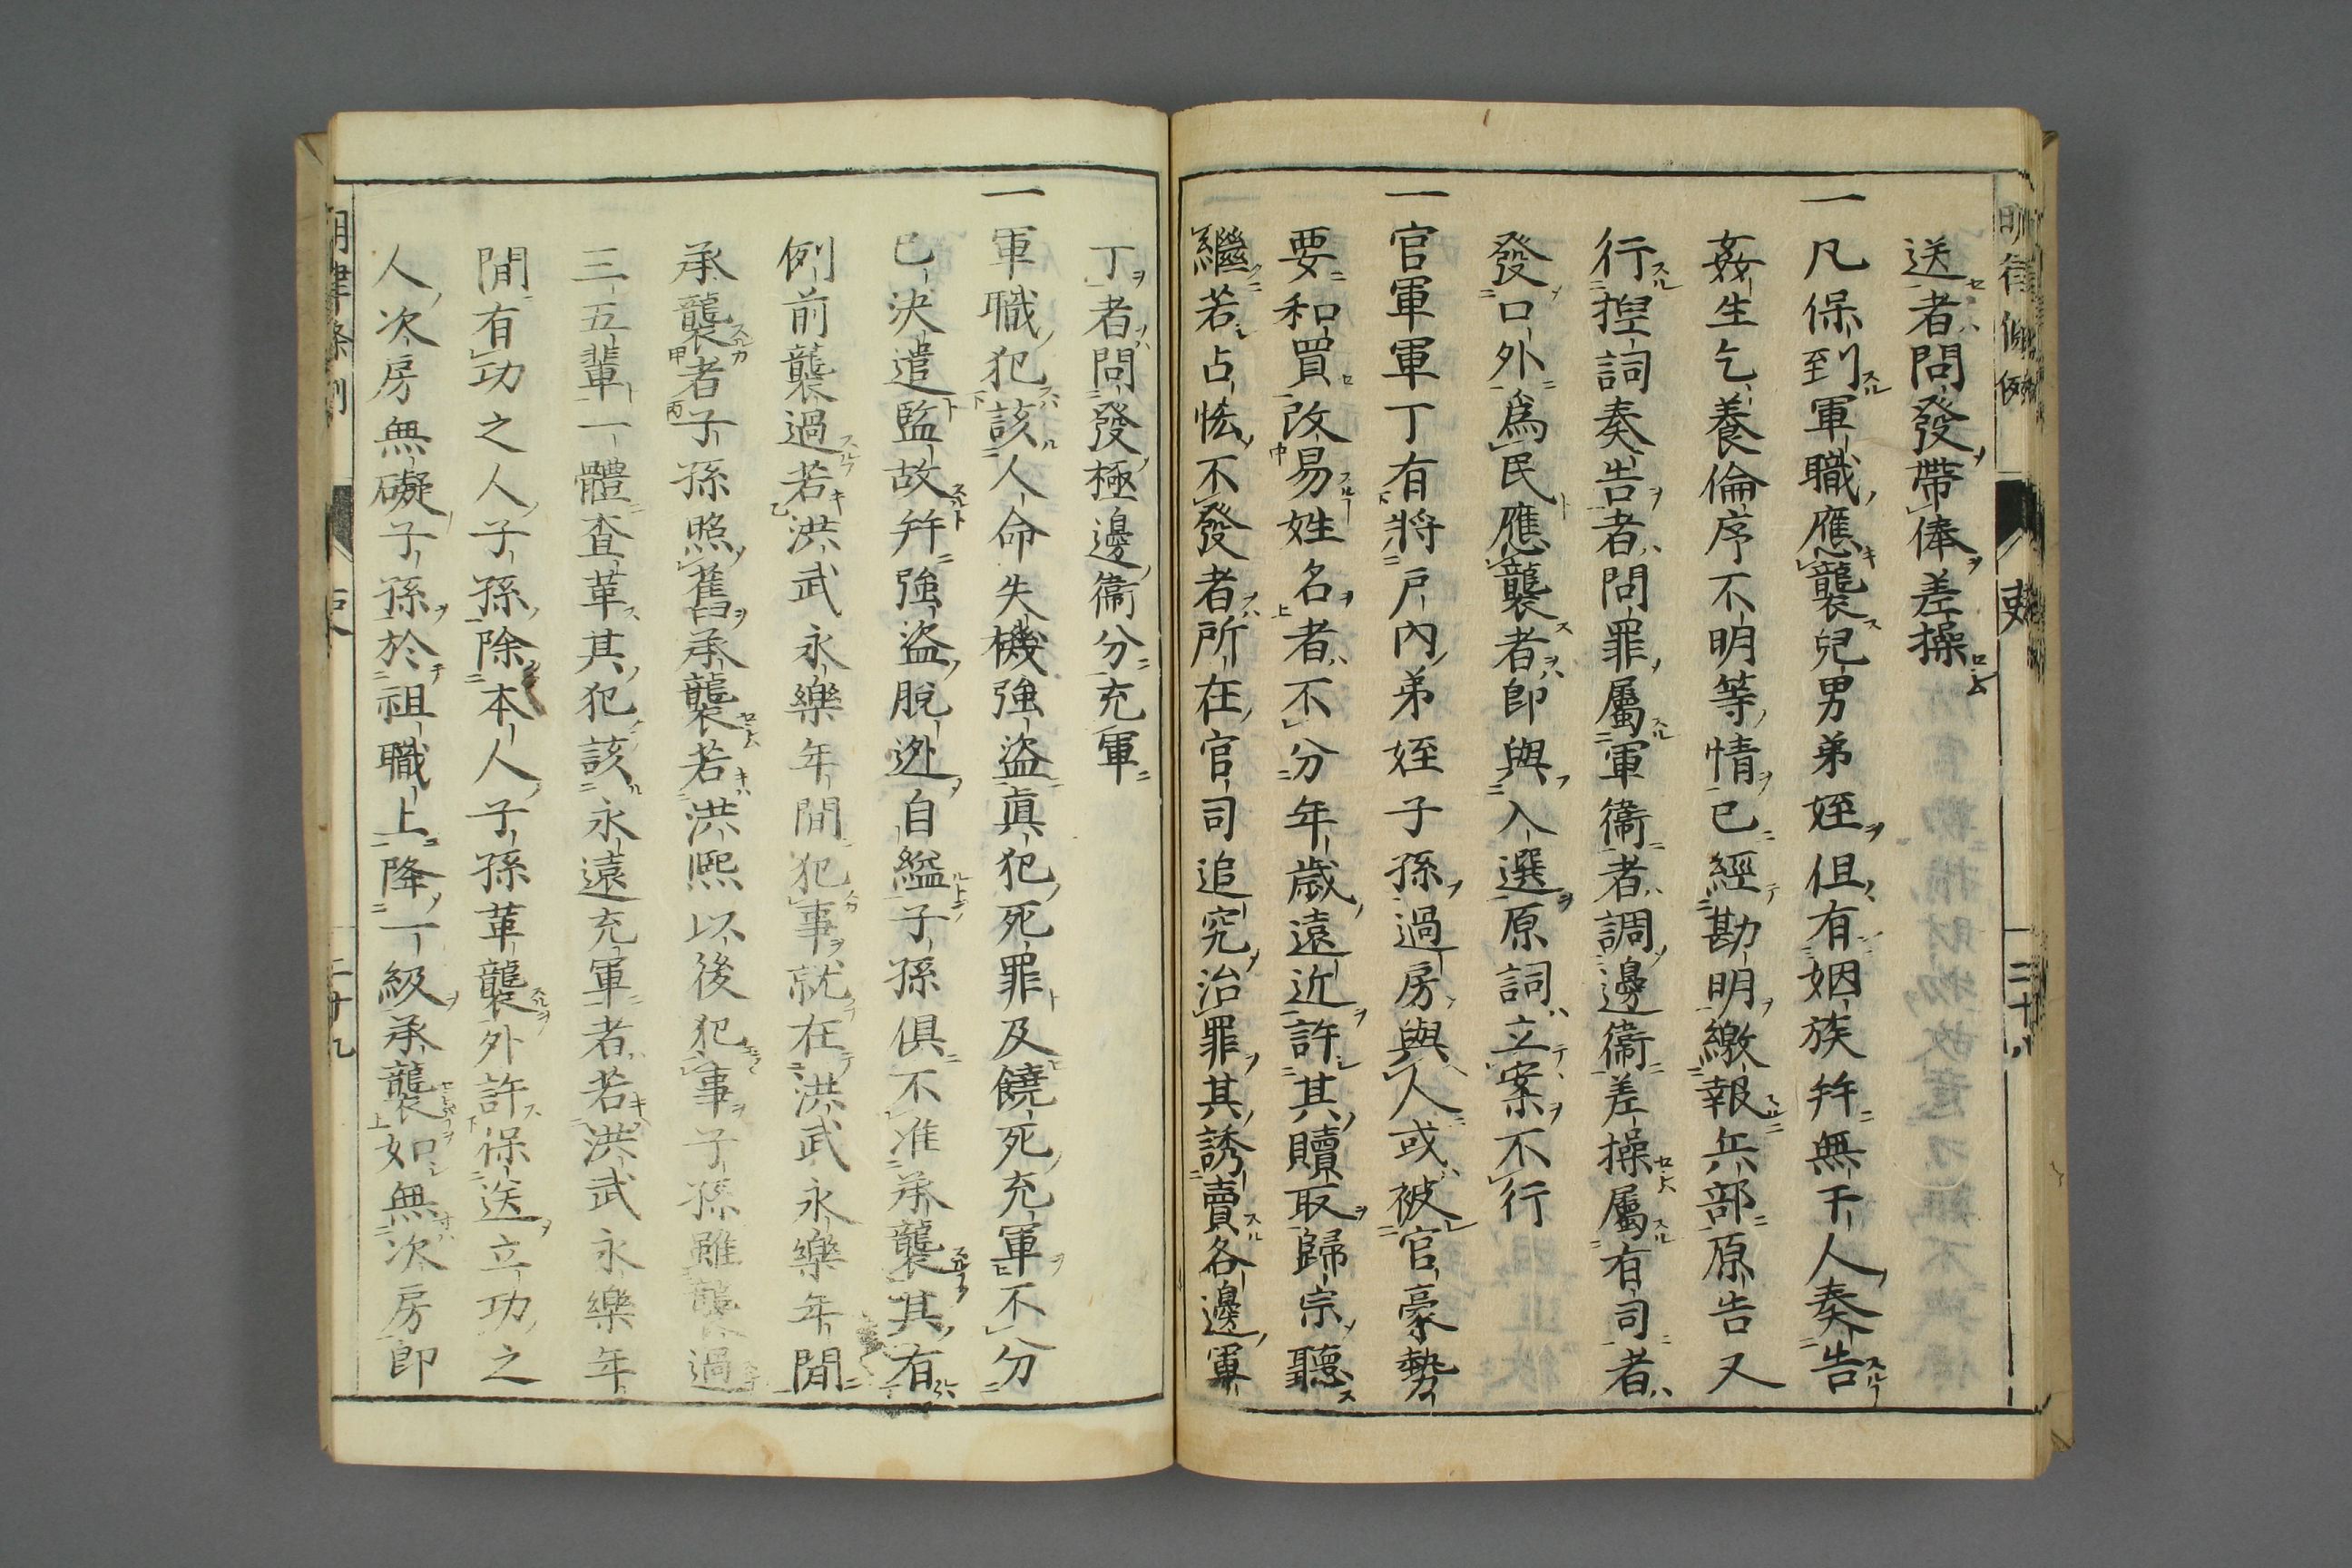 送者問發帶俸差操
一凡保到軍職應襲兒男弟姪但有姻族幷無干人奏告
姦生乞養倫序不明等情已經勘明繳報兵部原告又
行揑詞奏告者問罪屬軍衞者調邊衞差操屬有司者
發口外爲民應襲者卽與入選原詞立案不行
一官軍軍丁有將戶內弟姪子孫過房與人或被官豪勢
要和買改易姓名者不分年歲遠近許其贖取歸宗聽
繼若占恡不發者所在官司追究治罪其誘賣各邊軍
丁者問發極邊衞分充軍
一軍職犯該人命失機強盜眞犯死罪及饒死充軍不分
已決遣監故幷強盜脫逃自縊子孫俱不准承襲其有
例前襲過若洪武永樂年間犯事就在洪武永樂年間
承襲者子孫照舊承襲若洪熙以後犯事子孫雖襲過
三五輩一體查革其犯該永遠充軍者若洪武永樂年
間有功之人子孫除本人子孫革襲外許保送立功之
人次房無礙子孫於祖職上降一級承襲如無次房卽
明律條例
吏
二十九